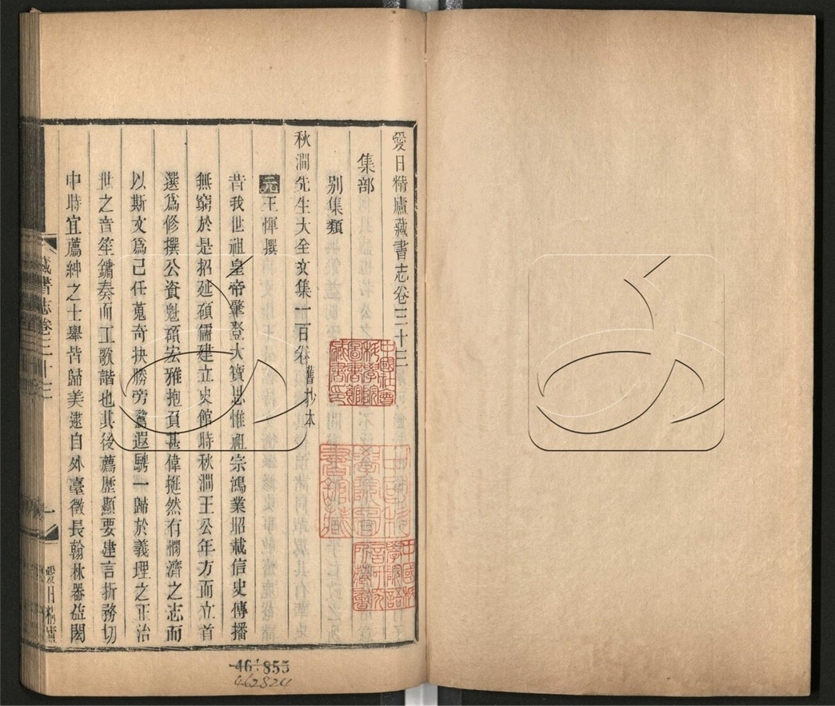 愛日精廬藏書志卷三十三
集部
別集類
秋澗先生大全文集一百卷 舊抄本
元王惲撰
昔我世祖皇帝肇登大寶思惟祖宗鴻業昭載信史傳播
無窮於是招延碩儒建立史館時秋澗王公年方而立首
選爲修撰公資魁碩宏雅抱負甚偉挺然有憫濟之志而
以斯文爲己任蒐奇抉勝旁騖遐騁一歸於義理之正治
世之音笙鏞奏而工歌諧也其後薦歷顯要建言折務切
中時宜薦紳之士舉皆歸美逮自外臺徵長翰林器益閎
藏書志卷三十三
一
愛日精廬
46855
462824